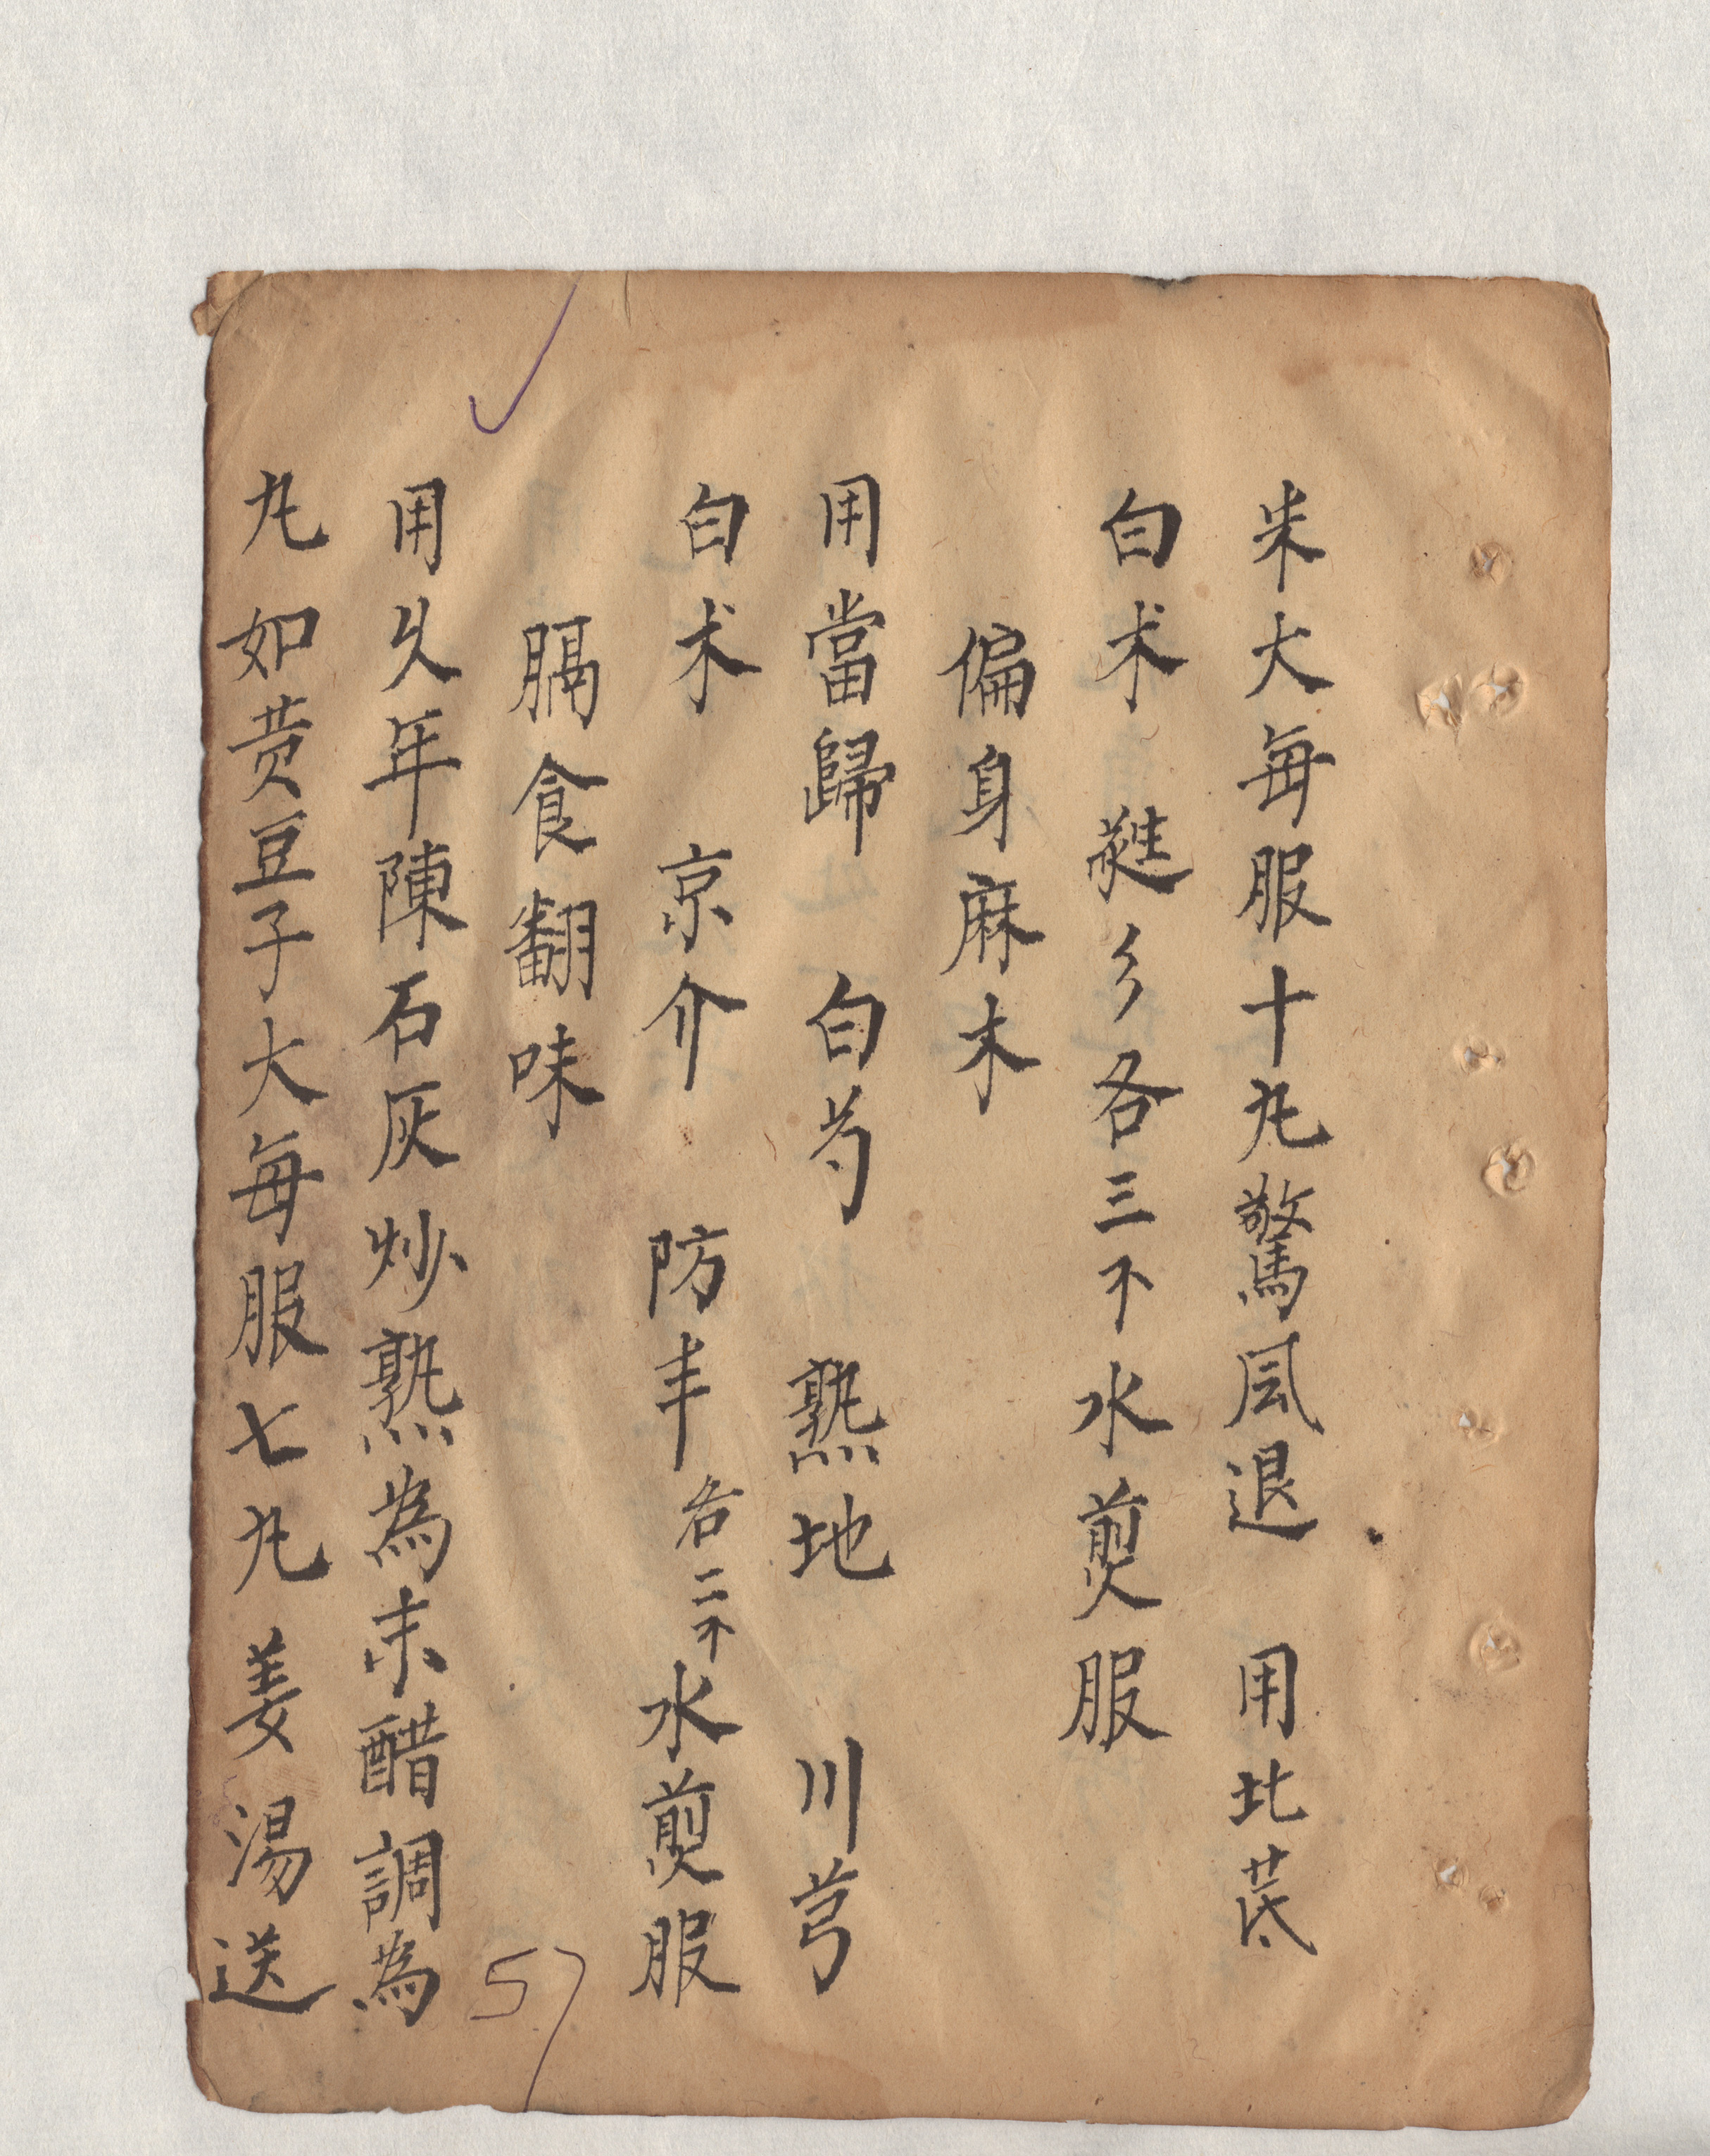 米大每服十丸驚風退 用北芪
白术 各三不水煎服
偏身麻木
用當歸 白芍 熟地 川芎
白术 京介 防丰各三不水煎服
膈食翻味
用久年陳石灰炒熟為末醋調為
丸如黄豆子大每服七丸姜湯送
57